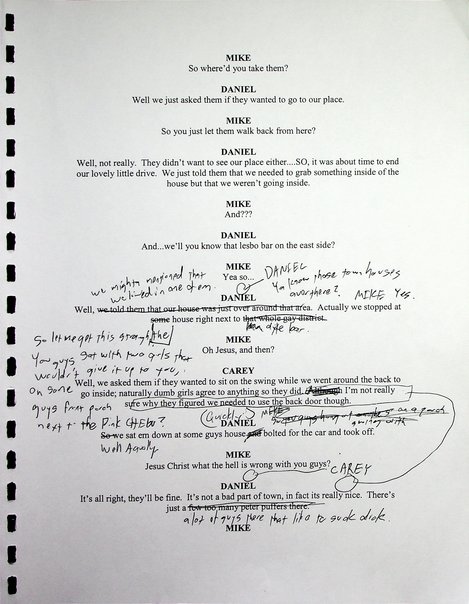 MIKE
So where'd you take them?
DANIEL
Well we just asked them if they wanted to go to our place.
MIKE
So you just let them walk back from here?
DANIEL
Well, not really. They didn't want to see our place either....SO, it was about time to end
our lovely little drive. We just told them that we needed to grab something inside of the
house but that we weren't going inside.
MIKE
And???
DANIEL
And...we'll you know that lesbo bar on the east side?
MIKE
Yea so...
DANIEL
Ya know those town houses
over there? MIKE Yes.
we mighta mentioned that
we lived in one of em.
DANIEL
Well, we told them that our house was just over around that area. Actually we stopped at
some house right next to that whole gay district.
dyke bar.
MIKE
Oh Jesus, and then?
So let me get this straight
You guys sat with two girls that
wouldn't give it up to you,
on some
guys front porch
next to the Pink
CAREY
Well, we asked them if they wanted to sit on the swing while we went around the back to
go inside; naturally dumb girls agree to anything so they did. Although I'm not really
sure why they figured we needed to use the back door though.
(Quickly) MIKE
DANIEL
So we sat em down at some guys house and bolted for the car and took off.
Well Actually
MIKE
Jesus Christ what the hell is wrong with you guys?
CAREY
DANIEL
It's all right, they'll be fine. It's not a bad part of town, in fact its really nice. There's
just a few too many peter puffers there.
a lot of guys there that like to suck dick.
MIKE